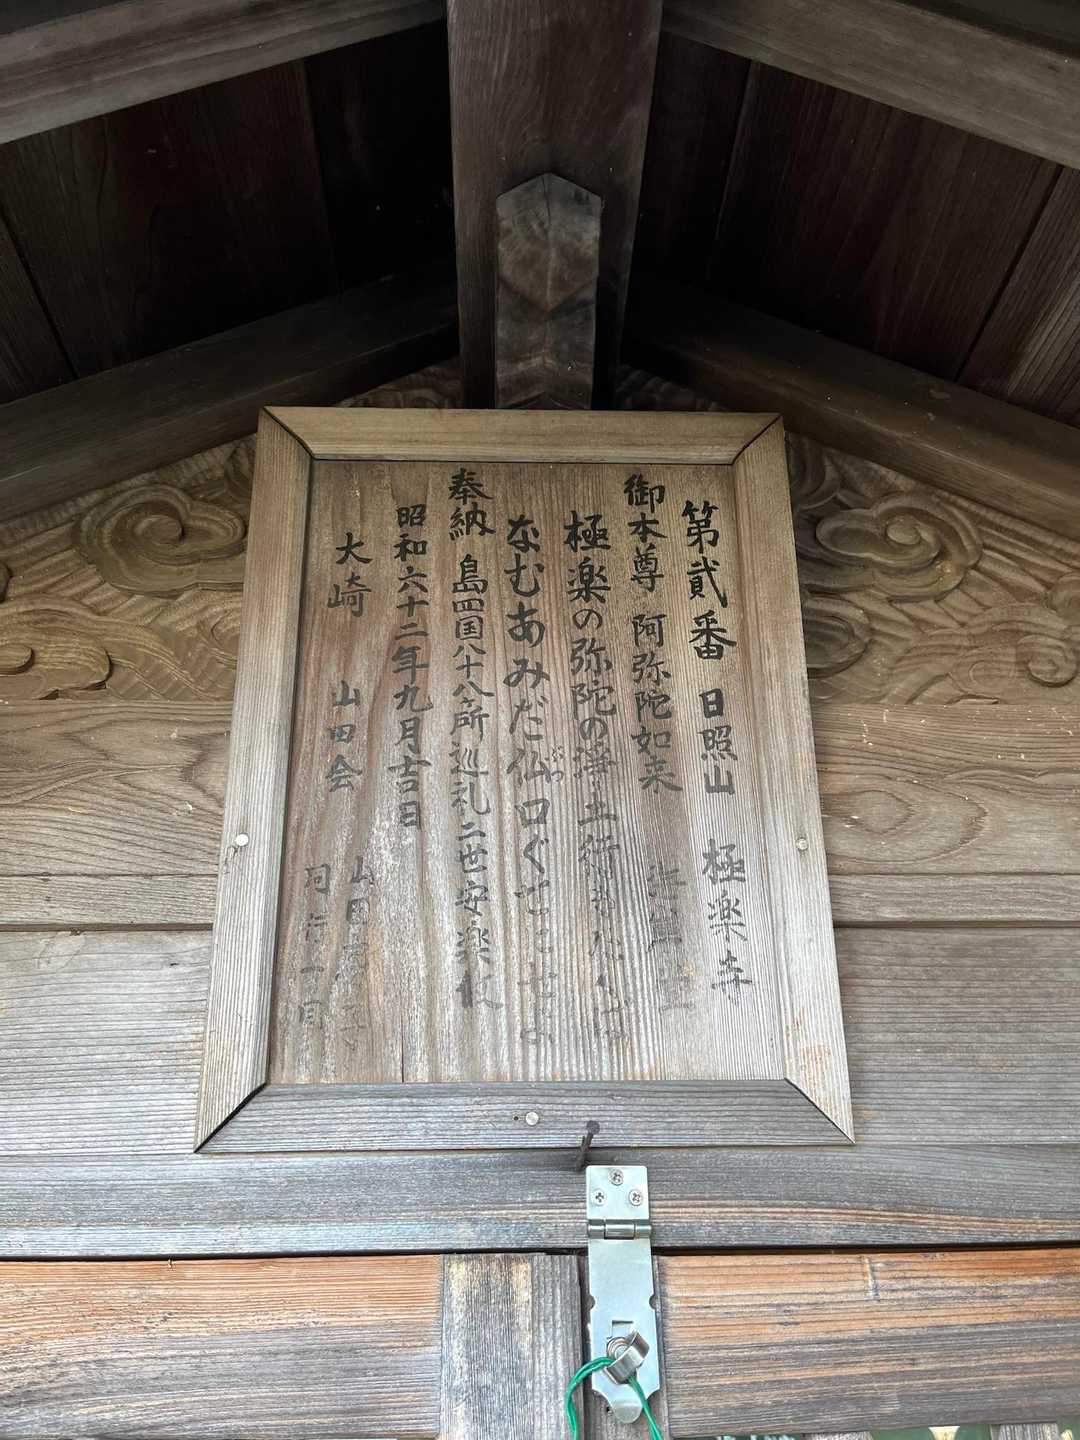 第貳番 日照山 極楽寺
御本尊 阿弥陀如来
極楽の弥陀の浄土へ行き
なむあみだ仏口ぐせにせよ
ぶつ
奉納 島四国八十八ヶ所巡礼二世安楽
昭和六十二年九月吉日
大崎 山田会 山田
同行一同